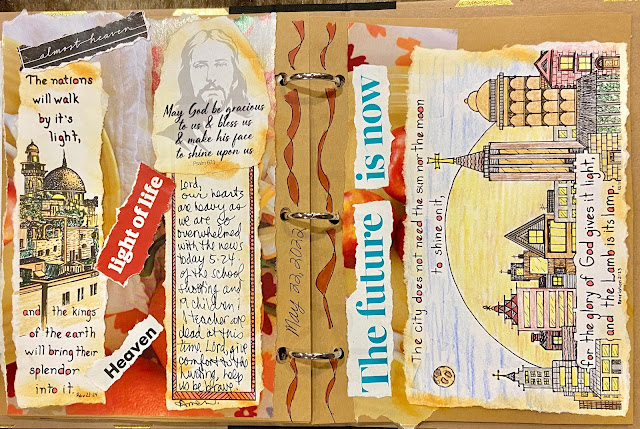 almost heaven
The nations
will walk
by it's
light,
and the kings
of the earth
will bring their
splendor
into it.
Rev 21:24
light of life
Heaven
May God be gracious
to us & bless us
& make his face
to shine upon us
Psalm 67:1
Lord,
our hearts
are heavy as
we are so
overwhelmed
with the news
today 5-24
of the school
shooting and
19 children
1 teacher are
dead at this
time. Lord, give
comfort to the
hurting, help
us be brave.
Amen.
May 22, 2022
The future is now
The city does not need the sun nor the moon
to shine on it,
for the glory of God gives it light,
and the Lamb is its lamp.
Revelation 21:23